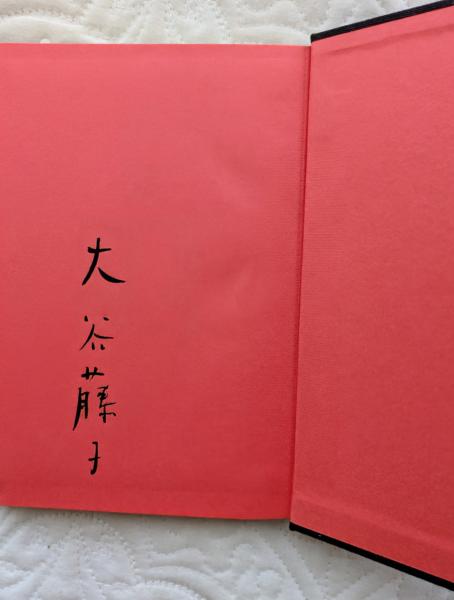 大谷藤子